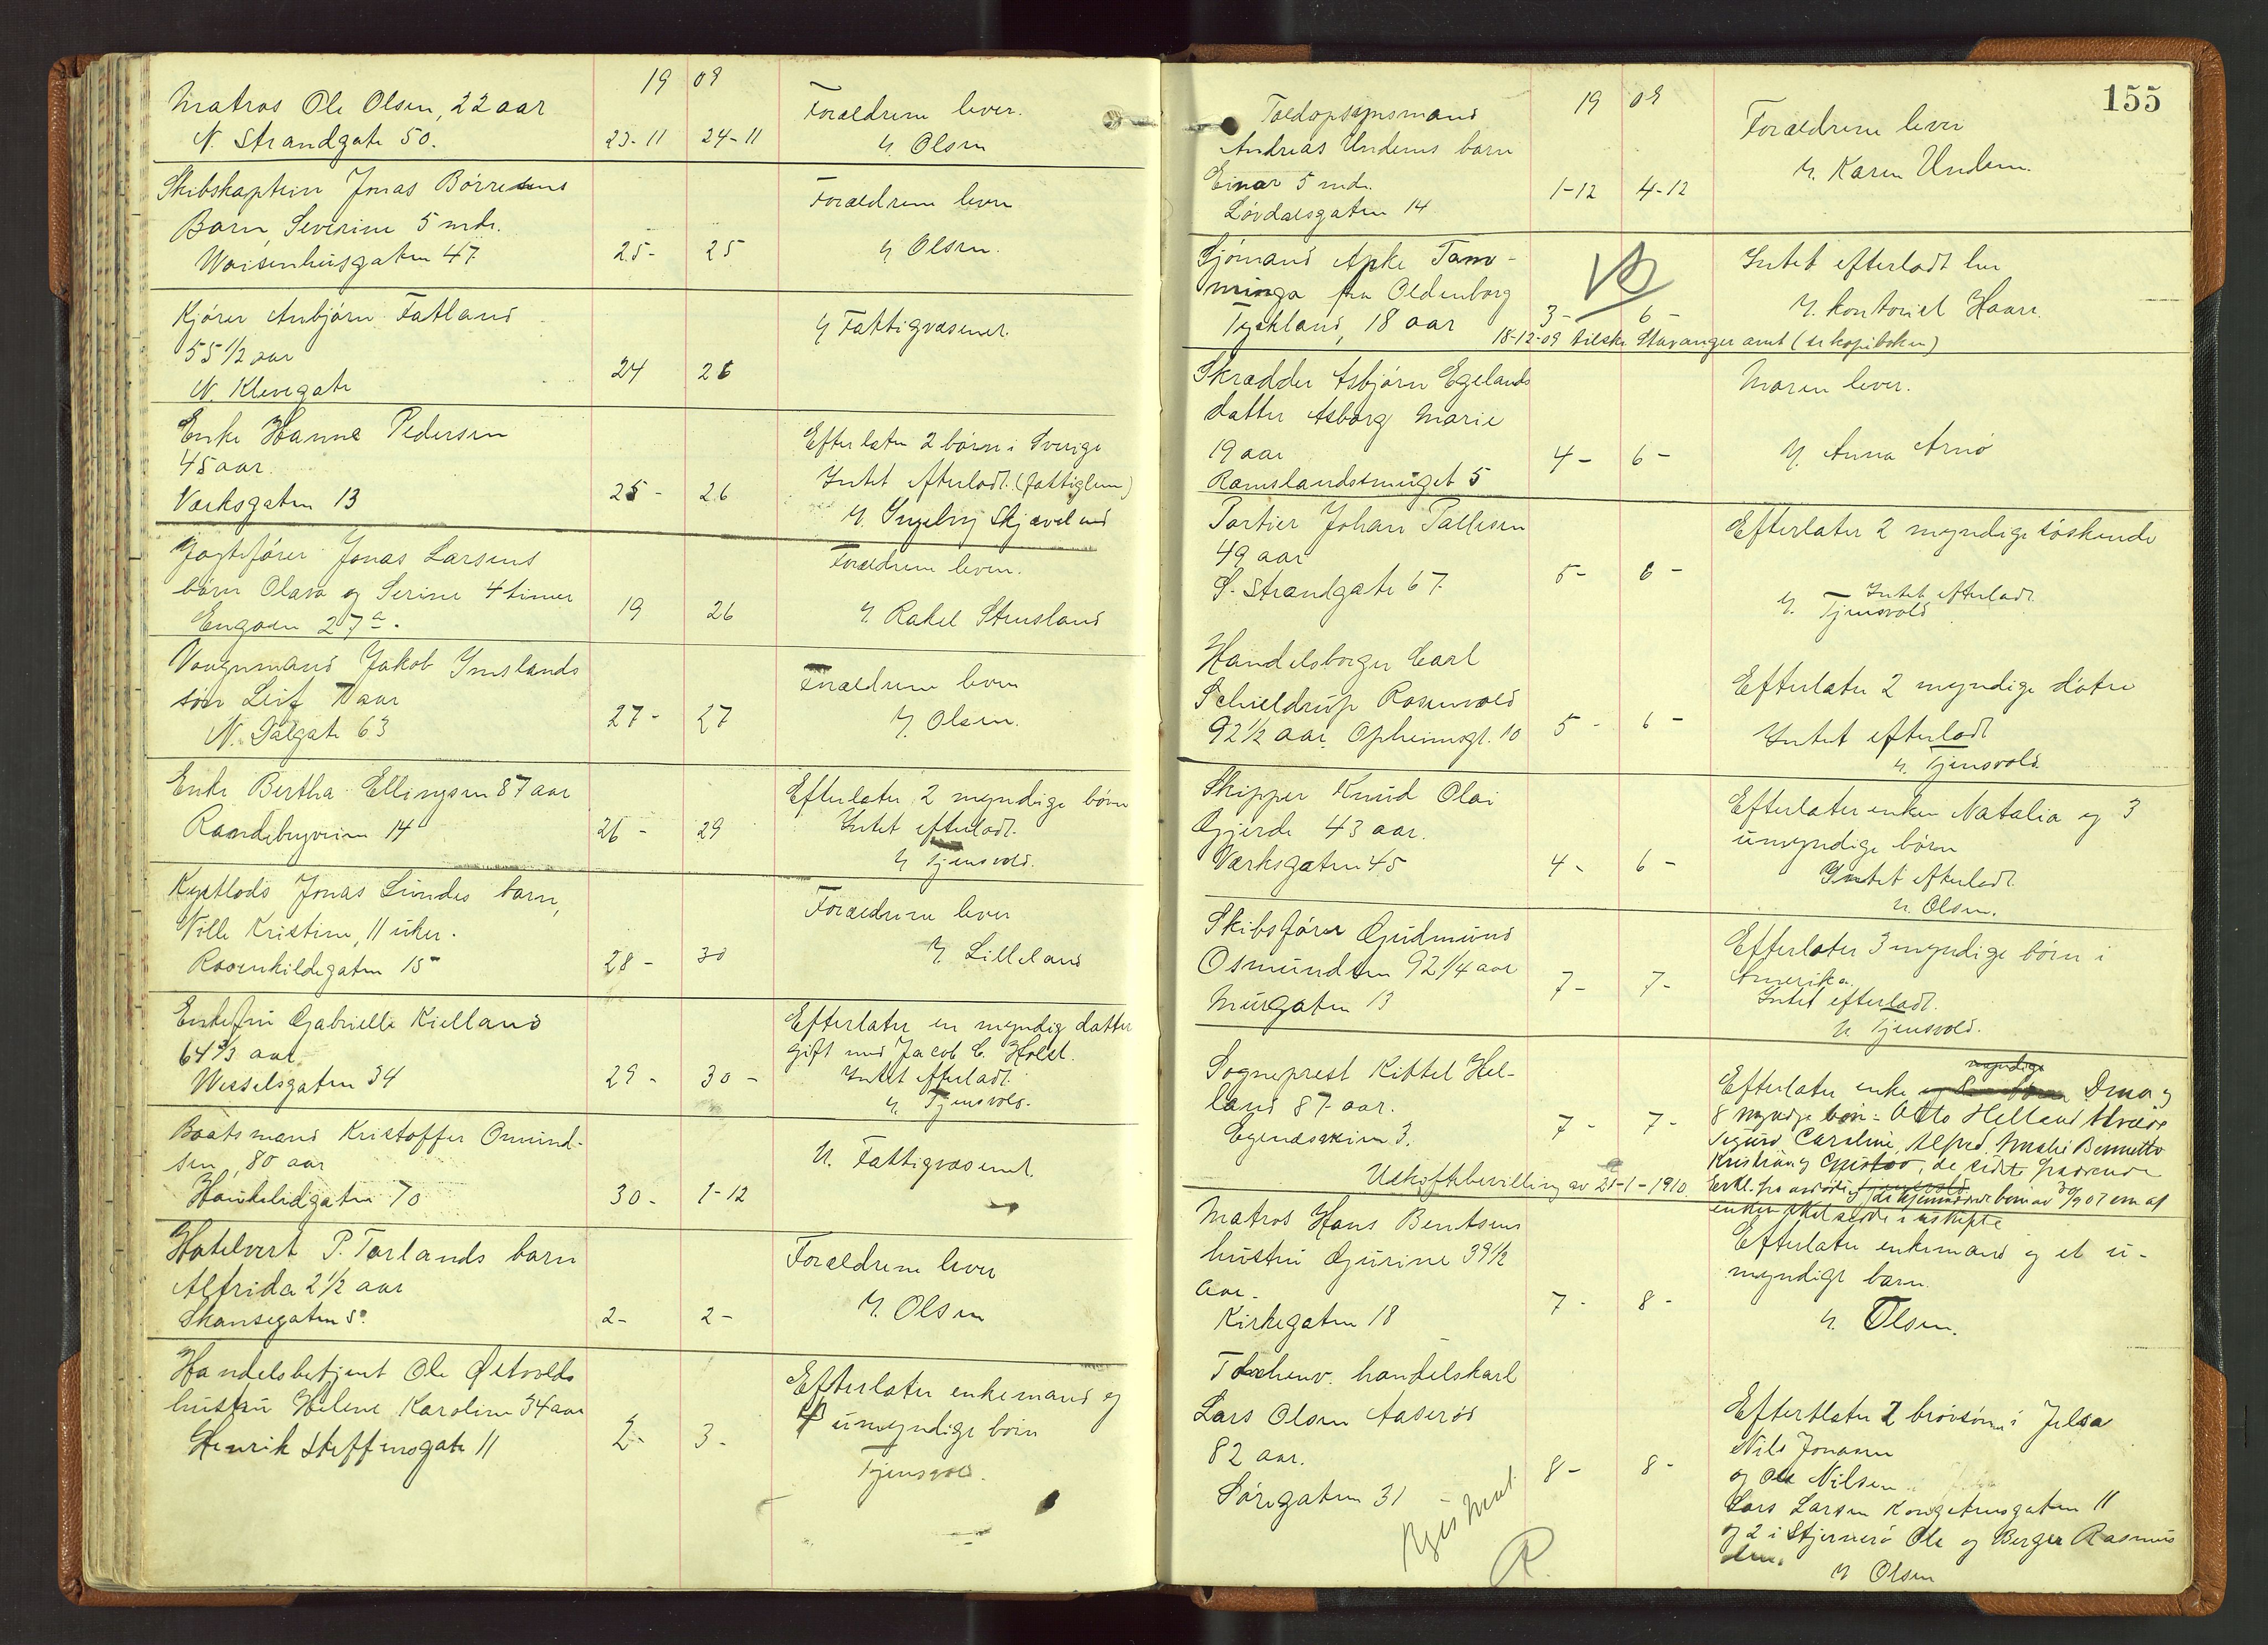 19 09
Matros Ole Olsen, 22 aar
N. Strandgate 50. 23-11 24-11
Forældrene lever.
Olsen
Skibskaptein Jonas Börresens
Barn, Severine 5 mdr.
Waisenhusgaten 47 25- 25
Forældrene lever
Olsen.
Kjörer Anbjörn Fatland
55 1/2 aar
N. Klevegate 24 26
Fattigvæsenet.
Enke Hanna Pedersen
45 aar.
Værksgaten 13 25- 26
Efterlater 2 börn i Sverige
Intet efterladt. (fattiglem)
Ingeborg Skjæveland
Jagtefører Jonas Larsens
börn Olava og Serine 4 timer
Engøen 27a. 19 26
Forældrene lever.
Rakel Stensland
Vougnmand Jakob Imslands
sön Leif 7 aar
N. Dalgate 63 27- 27
Forældrene lever
Olsen.
Enke Bertha Ellingsen 87 aar
Randebergveien 14 26- 29
Efterlater 2 myndige börn
Intet efterladt.
Tjensvold.
Kystlods Jonas Lundes barn,
Nille Kristine, 11 uker.
Rosenkildegaten 15 28- 30
Forældrene lever
Lilleland
Enkefru Gabrielle Kielland
64 2/3 aar
Wesselsgaten 34 29- 30-
Efterlater en myndig datter
gift med Jacob C. Holst.
Intet efterladt.
Tjensvold.
Baatsmand Kristoffer Omund-
sen, 80 aar
Haukelidgaten 70 30- 1-12
Fattigvæsenet.
Hotelvert P. Torlands barn
Alfrida 2 1/2 aar
Skansegaten 5. 2- 2-
Forældrene lever
Olsen
Handelsbetjent Ole Østvolds
hustru Helene Karoline 34 aar
Henrik Steffensgate 11 2- 3-
Efterlater enkemand og
umyndige börn
Tjensvold.
155
19 09
Toldopsynsmand
Andreas Undems barn
Einar 5 mdr.
Lövdalsgaten 14 1-12 4-12
Forældrene lever
Karen Undem.
Sjömand Apke Tam-
minga fra Oldenborg
Tyskland, 18 aar 3- 6-
Intet efterladt her
kontorist Haar.
18-12-09 tilskr. Stavanger amt (se kopiboken)
Skrædder Asbjörn Egelands
datter Asborg Marie
19 aar
Ramslandssmuget 5 4- 6-
Moren lever.
Anna Arnö
Portier Johan Pallesen
49 aar
S. Strandgate 67. 5- 6-
Efterlater 2 myndige söskende
Intet efterladt
Tjensvold
Handelsborger Carl
Schieldrup Rosenvold
92 1/2 aar. Opheimsgt. 10 5- 6-
Efterlater 2 myndige döttre
Intet efterladt
Tjensvold.
Skipper Knud Olai
Gjerde 43 aar.
Værksgaten 45 4- 6-
Efterlater enken Natalia og 3
umyndige börn
Intet efterladt
Olsen.
Skibsförer Gudmund
Osmundsen 92 1/4 aar
Murgaten 13 7- 7-
Efterlater 3 myndige börn i
Amerika.
Intet efterladt.
Tjensvold.
Sogneprest Kittel Hel-
land 87 aar.
Egenæsveien 3. 7- 7-
myndige
Efterlater enke og
8 myndige börn: Otto Helland
Sigurd Caroline, Alfred, Malie Bennetter
Kristian og de sidste
Uskiftebevilling av 21-1-1910
enken
Matros Hans Bentsens
hustru Gurine 39 1/2
aar.
Kirkegaten 18 7- 8-
Efterlater enkemand og et u-
myndigt barn.
Olsen.
handelskarl
Lars Olsen Aaseröd
82 aar.
Söregaten 31 8- 8-
Efterlater 2 brorsönner i Jelsa
Nils Jonassen
og Ole Nilsen
Lars Larsen Kongstensgaten 11
og 2 i Stjernerö Ole og Berger Rasmus
sen.
Olsen
R.